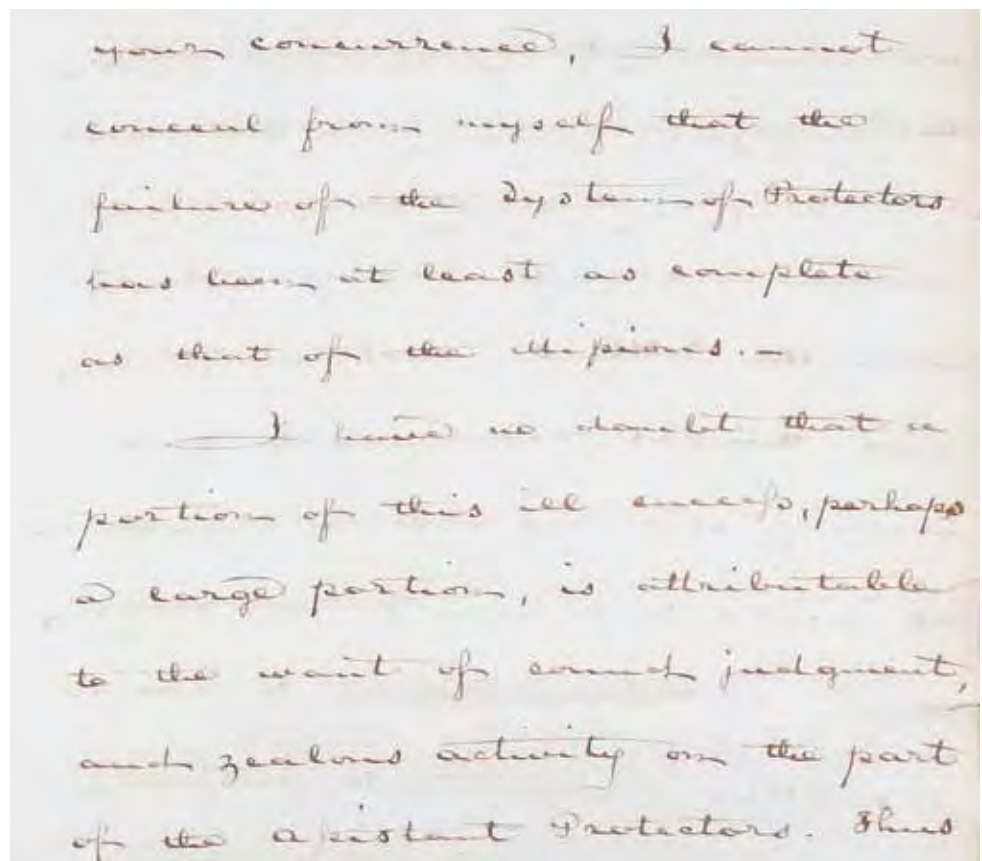 your concurrence, I cannot
conceal from myself that the
failure of the System of Protectors
has been at least as complete
as that of the Missions. —
I have no doubt that a
portion of this ill success, perhaps
a large portion, is attributable
to the want of sound judgment,
and zealous activity on the part
of the Assistant Protectors. Thus